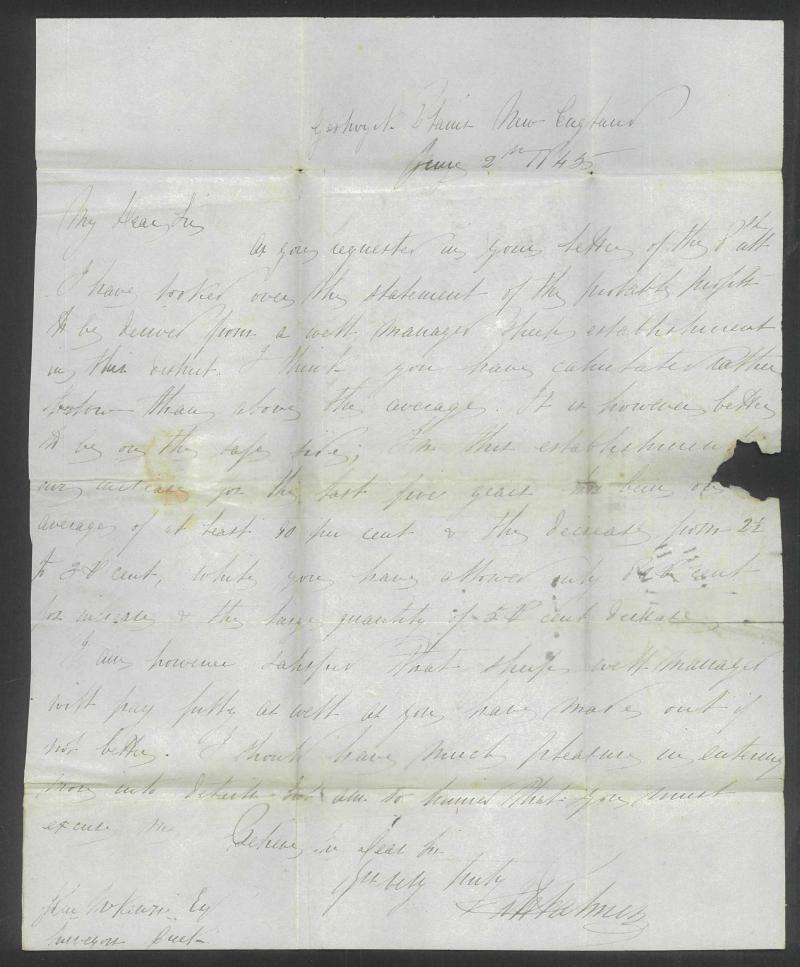 Plains New England
June 2nd 1845
My Dear Sir
As you requested in your letter of the ult
I have looked over the statement of the probable profits
to be derived from a well managed sheep establishment
in this district. I think you have calculated rather
below than above the average. It is however better
to be on the safe side; In this establishment
our increase for the last five years has been on
average of at least 80 per cent & the decrease from 2½
to 3 P cent, while you have allowed only P cent
for increase & the large quantity of 5 P cent decrease
I am however satisfied that sheep well managed
will pay fully as well as you have made out if
not better. I should have much pleasure in entering
more into details but am so hurried that you must
excuse me
Believe me Dear Sir
Yrs very truly
McKenzie Esq
Creek